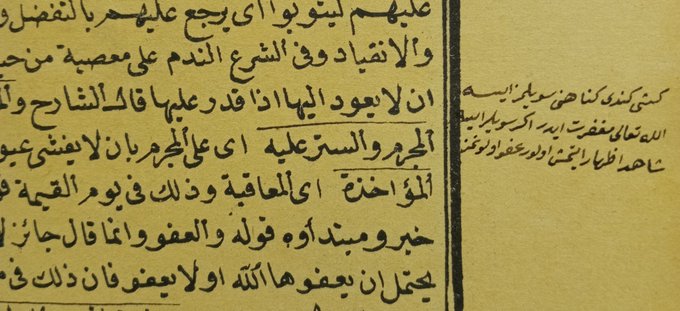 عليهم ليتوبوا اى يرجع عليهم بالتفضل و
والانقياد وفى الشرع الندم على معصية من حيث
ان لا يعود اليها اذا قدر عليها قال الشارح
المجرم والستر عليه اى على المجرم بان لا يفشى عيو
المؤاخذة اى المعاقبة وذلك فى يوم القيمة
خبر ومبتدأوه قوله والعفو وانما قال جائز
يحتمل ان يعفوها الله او لا يعفو فان ذلك فى
كشى كندى كناهنى سويلمز ايسه
الله تعالى مغفرت ايدر اكر سويلر ايسه
شاهد اظهار ايتمش اولور عفو اولونمز